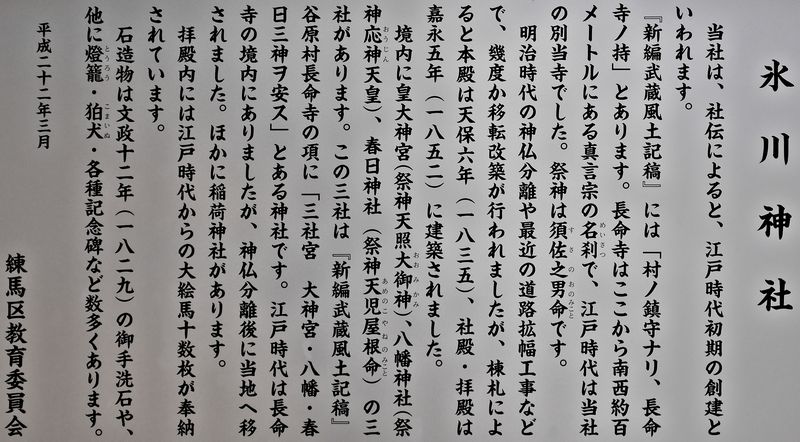 氷川神社
当社は、社伝によると、江戸時代初期の創建と
いわれます。
『新編武蔵風土記稿』には「村ノ鎮守ナリ、長命
寺ノ持」とあります。長命寺はここから南西約百
メートルにある真言宗の名刹で、江戸時代は当社
の別当寺でした。祭神は須佐之男命です。
明治時代の神仏分離や最近の道路拡幅工事など
で、幾度か移転改築が行われましたが、棟札によ
ると本殿は天保六年（一八三五）、社殿・拝殿は
嘉永五年（一八五二）に建築されました。
境内に皇大神宮（祭神天照大御神）、八幡神社（祭
神応神天皇）、春日神社（祭神天児屋根命）の三
社があります。この三社は『新編武蔵風土記稿』
谷原村長命寺の項に「三社宮　大神宮・八幡・春
日三神ヲ安ス」とある神社です。江戸時代は長命
寺の境内にありましたが、神仏分離後に当地へ移
されました。ほかに稲荷神社があります。
拝殿内には江戸時代からの大絵馬十数枚が奉納
されています。
石造物は文政十二年（一八二九）の御手洗石や、
他に燈籠・狛犬・各種記念碑など数多くあります。
平成二十二年三月
練馬区教育委員会